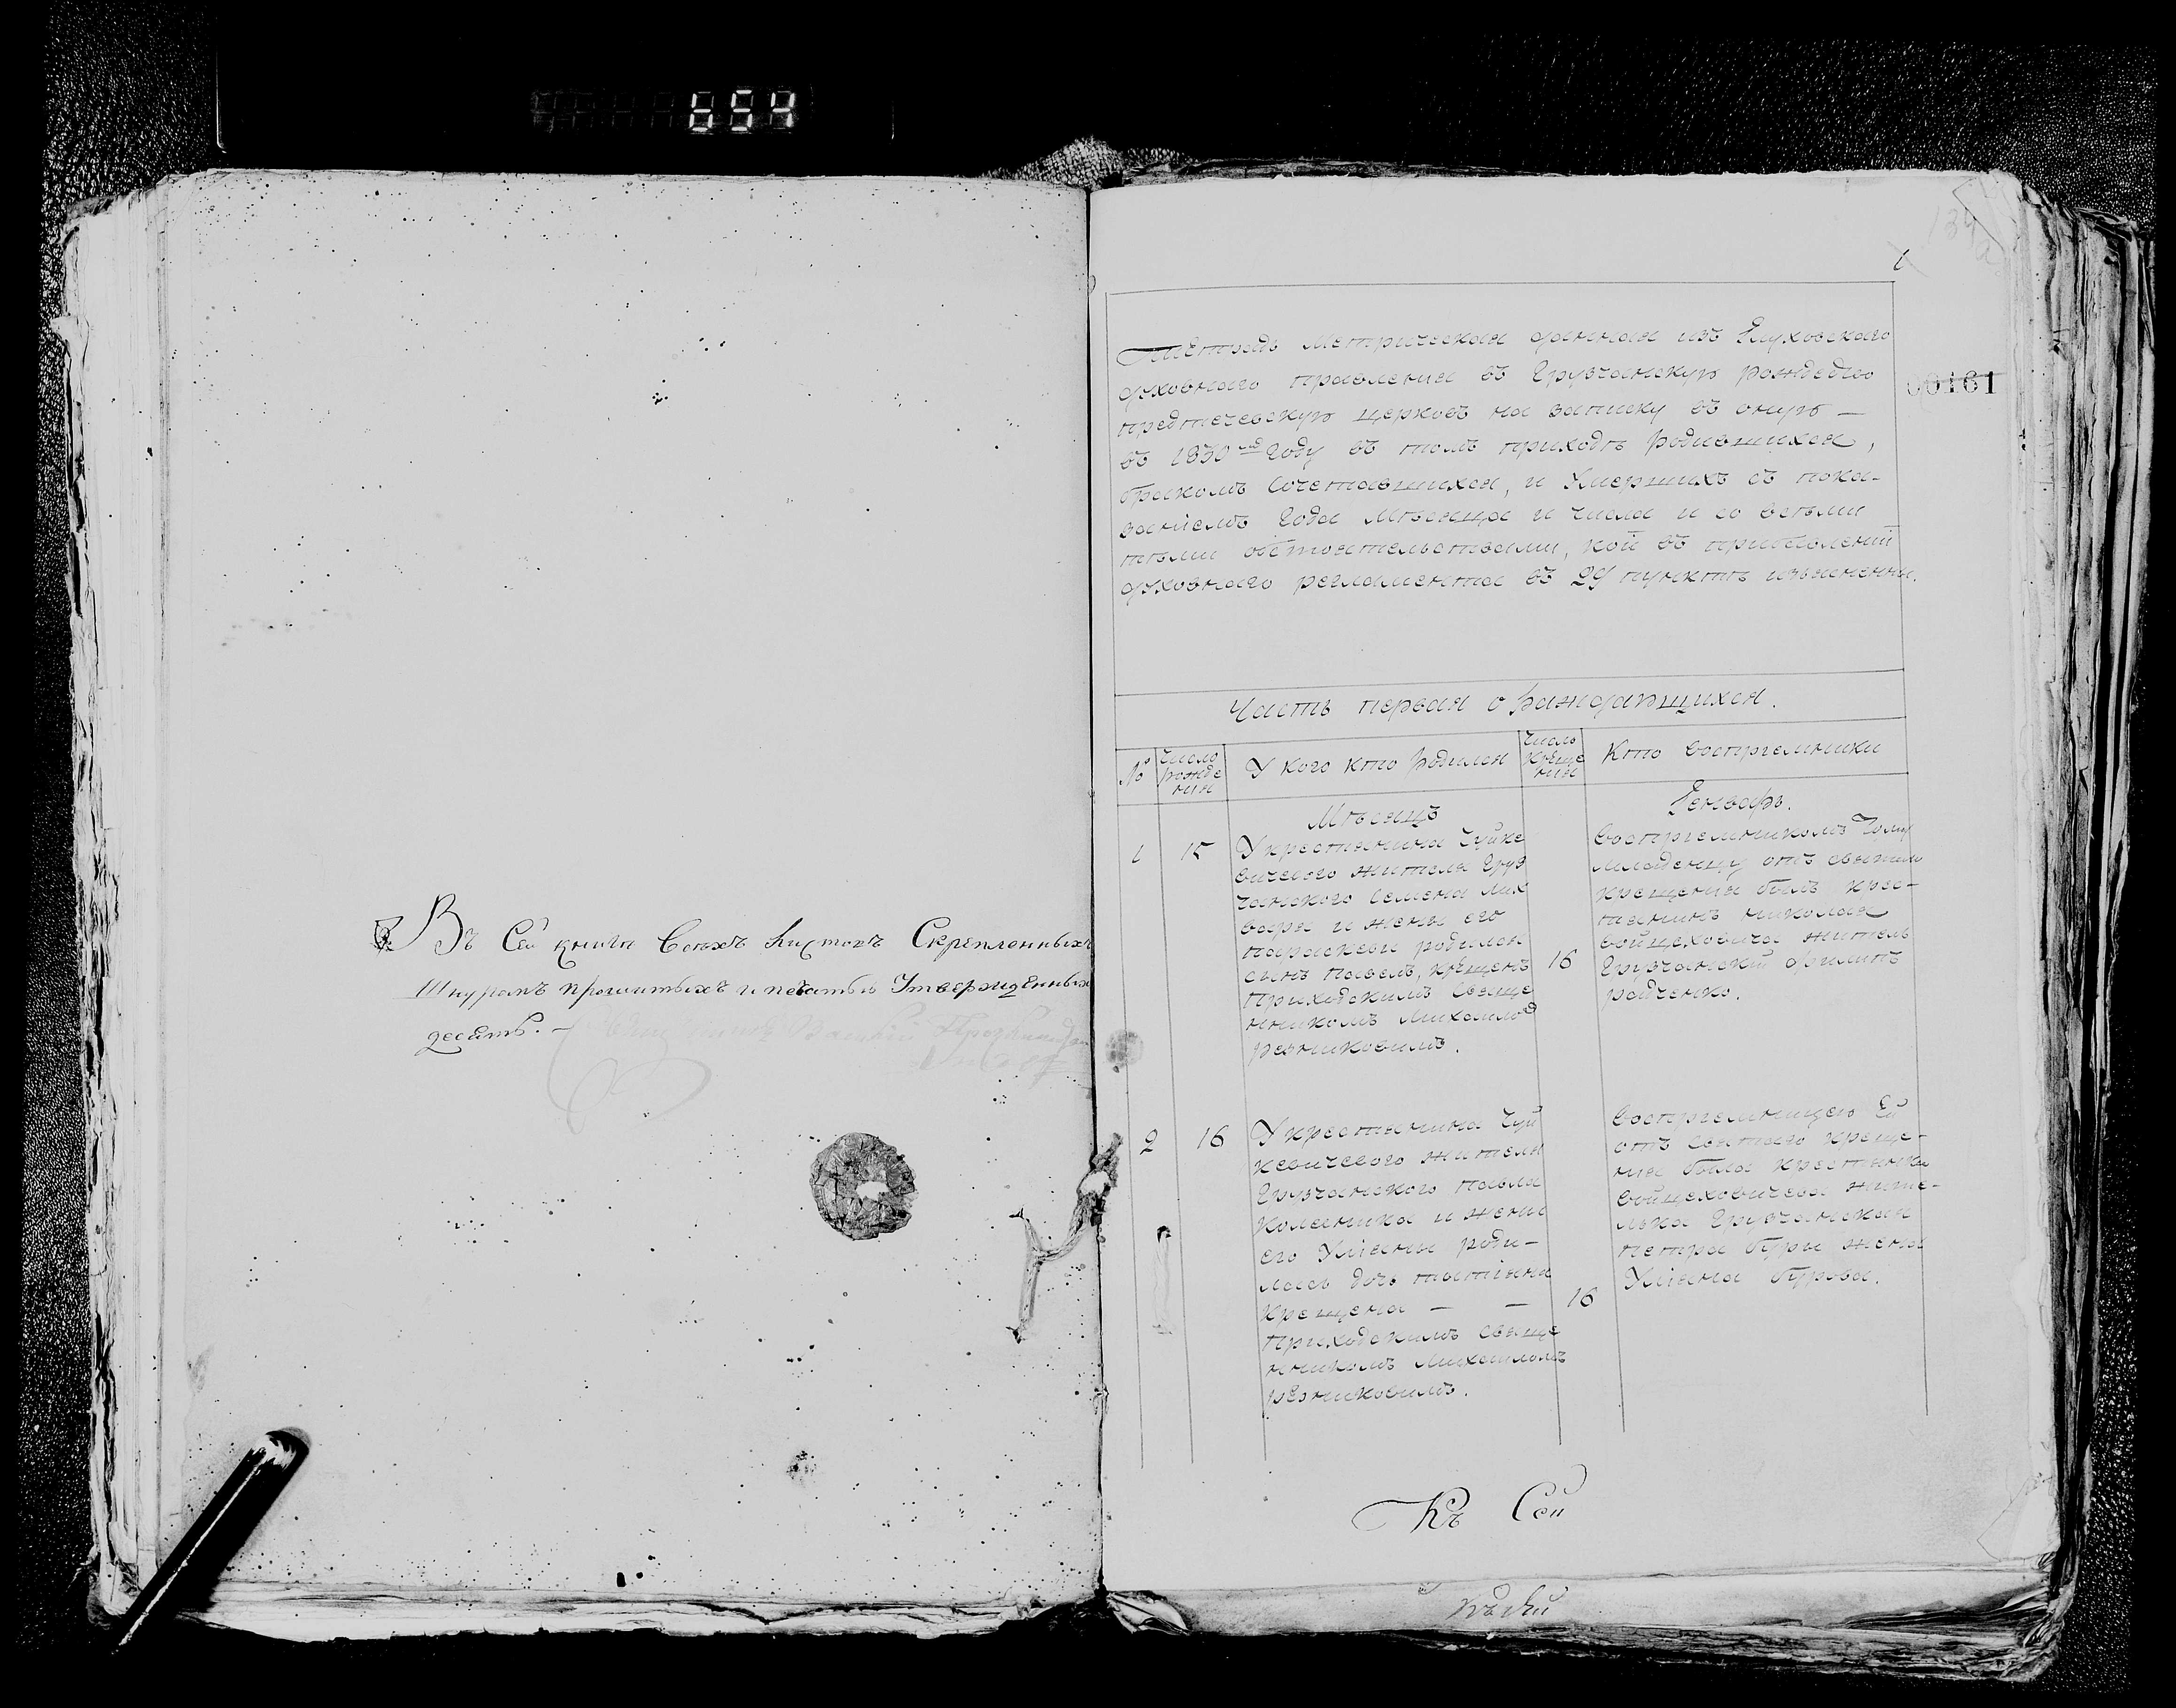 654
Въ Сей книги Всѣхъ Листовъ Скрепленныхъ
Шнуромъ прошитыхъ и печатью Утвержденныхъ
десять. —
1
00161
Тетрадь Метрическая данная изъ Глуховского
духовного правления въ Грузчанскую рождество
предтечевскую церковъ на записку въ оную —
въ 1830 году въ томъ приходѣ родившихся,
бракомъ Сочетавшихся, и Умершихъ съ пока-
заніемъ Года мѣсяца и числа и со всѣми
тѣми обстоятельствами, кои въ прибавленіи
духовного регламента въ 29 пунктѣ изъяснены.
Часть первая о раждающихся.
№
Число рожде ния
У кого кто родился
Число креще ния
Кто восприемники
Мѣсяцъ
Генварь.
1
15
У крестянина Чуйке
вичевого жителя Груз
чанского Семена Лих
вара и жены его
параскевы родился
сынъ павелъ, крещенъ
приходскимъ Свяще
нникомъ Михаиломъ
резниковимъ.
16
Восприемникомъ Тому
младенцу отъ святого
крещения былъ крес-
тянинъ николая
войцеховича житель
Грузчанский филипъ
радченко.
2
16
У крестянина Чуй
кевичевого жителя
Грузчанского павла
Колесника и жены
его Уліяны роди-
лась дочь татіяна
крещена — —
приходскимъ Свяще
нникомъ Михаиломъ
резниковимъ.
16
Восприемницею Ей
отъ Святаго креще-
ния была крестянка
войцеховичева жите-
лька Грузчанская
петра буры жена
Уліяна бурова.
Къ Сей